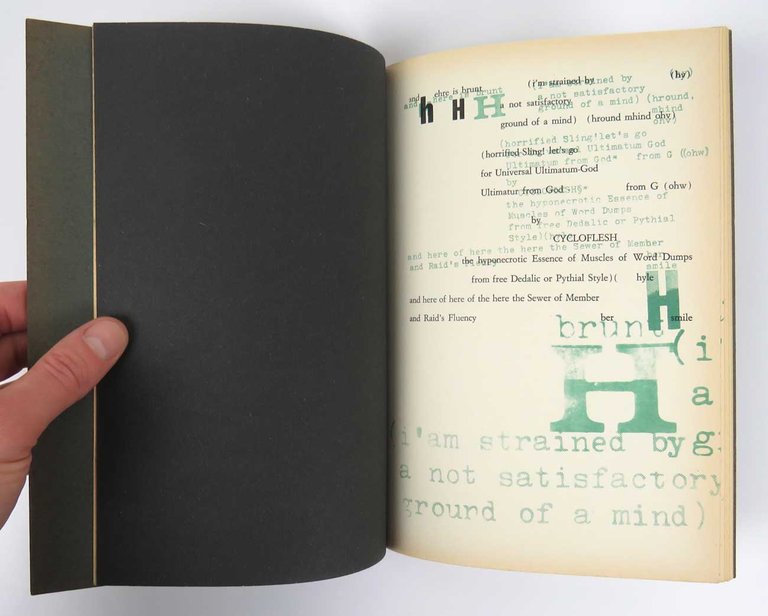 (i'm strained by (hy)
and ehre is brunt
h H H a not satisfactory
ground of a mind) (hround mhind ohv)
(horrified Sling! let's go
for Universal Ultimatum-God
Ultimatur from God from G (ohw)
by
CYCLOFLESH
the hyponecrotic Essence of Muscles of Word Dumps
from free Dedalic or Pythial Style)( hyle
and here of here of the here the Sewer of Member
and Raid's Fluency ber smile
and here is brunt
(i'am strained by (hy)
a not satisfactory
ground of a mind) (hround,
mhind
ohv)
(horrified Sling!let's go
Ultimatum God
Ultimatum from God* from G ((ohw)
by
the hyponecrotic Essence of
Muscles of Word Dumps
from free Dedalic or Pythial
Style)
and here of here the here the Sewer of Member
and Raid's
smile
H
brunt
H (i
a
(i'am strained by g
a not satisfactory
ground of a mind)